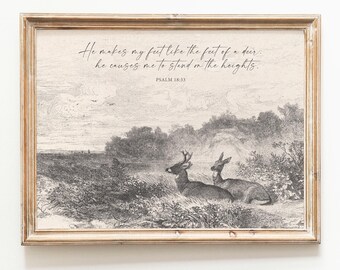 He makes my feet like the feet of a deer
he causes me to stand on the heights.
PSALM 18:33